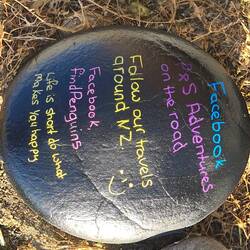 Facebook
B&S Adventures
on the road
Follow our travels
around NZ
Facebook
findPenguins
Life is short do what
makes you happy